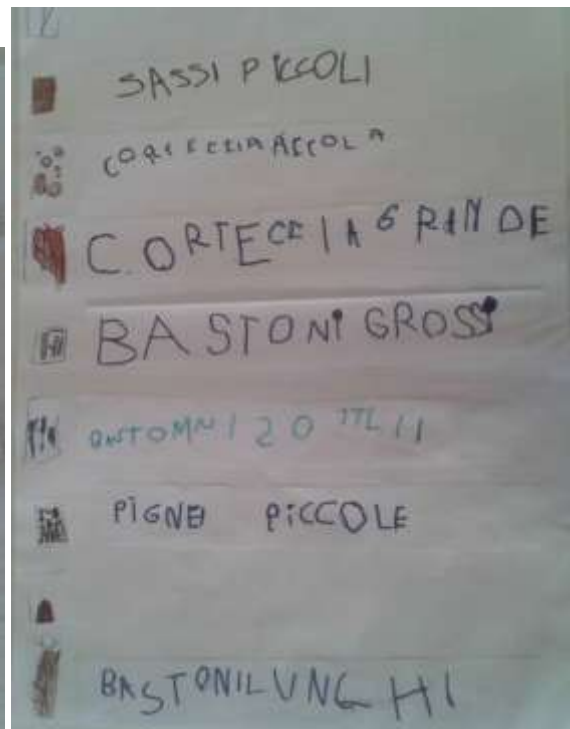 SASSI PICCOLI
CORTECCIA PICCOLA
CORTECCIA GRANDE
BASTONI GROSSI
PIGNE PICCOLE
BASTONI LUNGHI